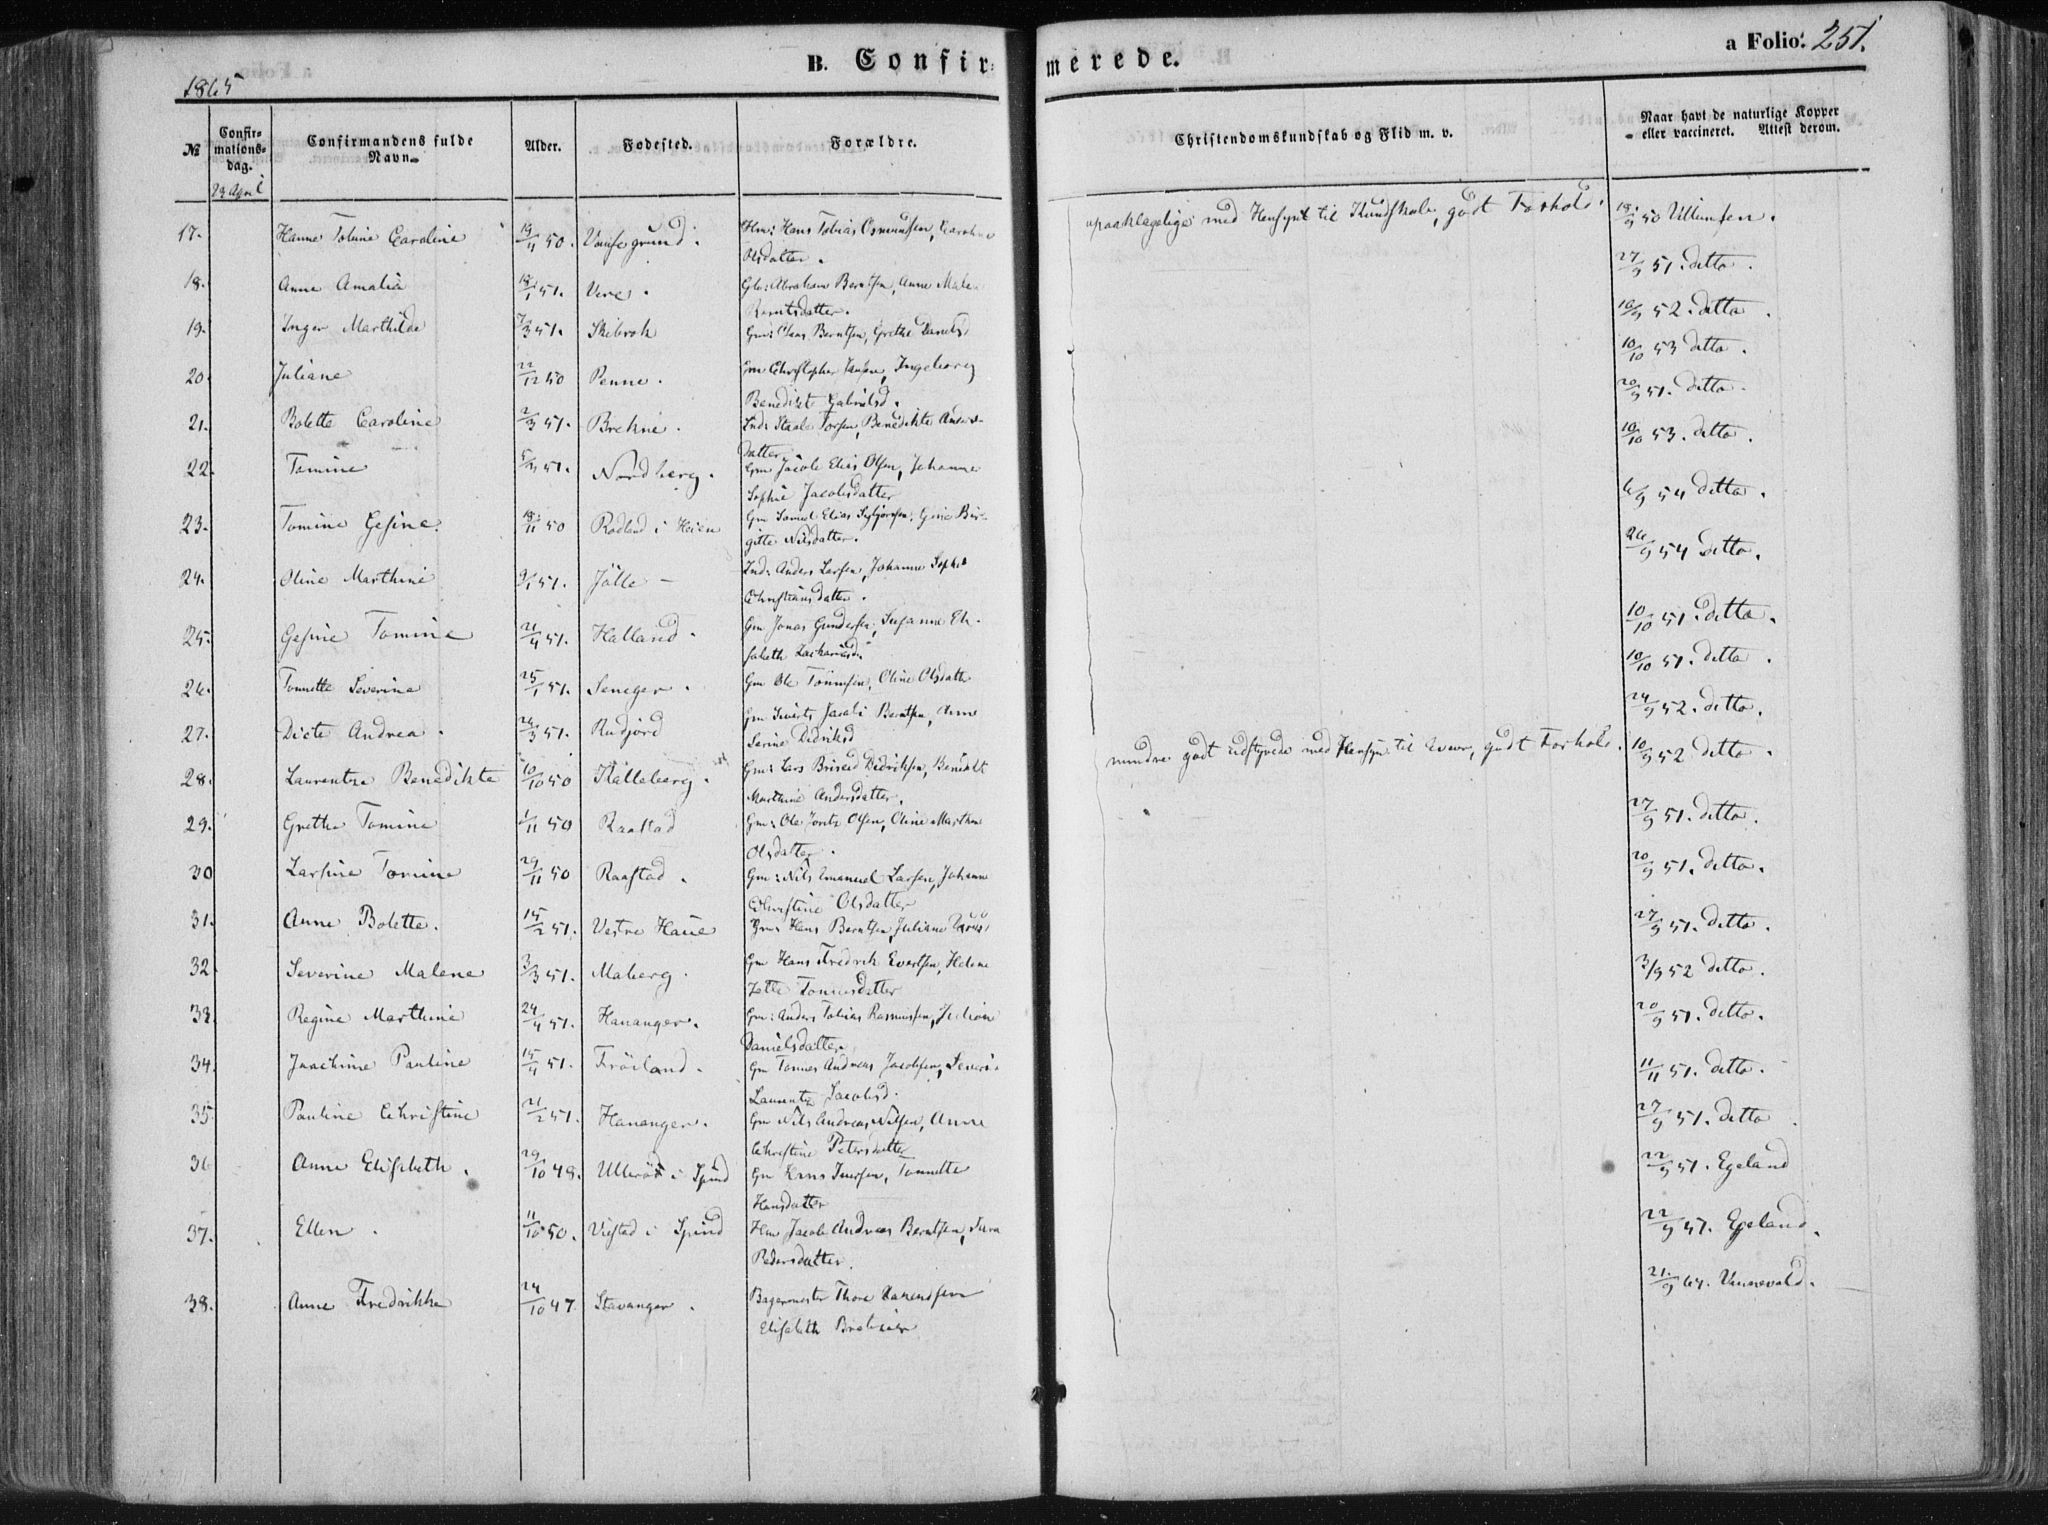 B. Confirmerede.
a Folio: 251.
1865
No
Confirmationsdag.
Confirmandens fulde Navn.
Alder.
Fødested.
Forældre.
Christendomskundskab og Flid m. v.
Naar havt de naturlige Kopper eller vaccineret. Attest derom.
23 April
17. Hanne Tobine Caroline 19/11 50. grund. Hm: Hans Tobias Osmundsen, Caroline upaaklagelige med Hensynt til Kundskab, godt Forhold. 18/9 50 Ullensen.
Olsdatter.
18. Anne Amalia 18/1 51. Vere. Gm: Abraham Berntsen, Anne Malene 27/9 51. ditto.
Berntsdatter.
19. Inger Marthilde 7/3 51. Skibrok Gm: Claus Berntsen, Grethe Danielsd 16/9 52. ditto.
20. Juliane 22/12 50 Penne. Gm Christopher Jansen, Ingeborg 10/10 53 ditto.
Benedikte Gabrielsd.
21. Bolette Caroline 2/3 51. Brekne. Ind: Staale Torsen, Benedikte Anders- 20/9 51. ditto.
datter
22. Tomine 5/3 51. Nordberg. Gm Jacob Elias Olsen, Johanne 10/10 53. ditto.
Sophie Jacobsdatter
23. Tomine Gesine 18/11 50 Rødland i Heien Gm Samuel Elias Gine Bir- 6/9 54 ditto.
gitte Nilsdatter.
24. Oline Marthine 9/1 51. Jølle – Ind: Anders Larsen, Johanne Sophie 26/9 54 ditto.
Christiansdatter.
25. Gesine Tomine 21/4 51. Halland. Gm Jonas Gundersen, Susanne Eli- 10/10 51. ditto.
sabeth Zachariasd.
26. Tonnette Severine 25/1 51. Seneger. Gm Ole Tønnesen, Oline Olsdatter 10/10 51. ditto.
27. Dicte Andrea. 26/3 51. Rudjord Gm Sivert Jacob Berntsen, Anne 24/9 52. ditto.
Serine Didriksd
28. Laurentze Benedikte 10/10 50 Kalleberg. Gm: Lars Briseid Didriksen, Benedikte mindre godt udstyrede med Hensyn til Evner, godt Forhold. 10/9 52 ditto.
Marthine Andersdatter.
29. Grethe Tomine 1/11 50 Raastad Gm: Ole Olsen, Oline Marthine 27/9 51. ditto.
Olsdatter.
30 Larsine Tomine 29/11 50 Raastad. Gm: Nils Emanuel Larsen, Johanne 20/9 51. ditto.
Christine Olsdatter
31. Anne Bolette. 15/2 51. Vestre Haue Gm: Hans Berntsen, Juliane 27/9 51. ditto.
32. Severine Malene 3/3 51. Maberg. Gm Hans Fredrik Evertsen, Helene 3/9 52 ditto.
Jette Tønnesdatter
33. Regine Marthine 24/4 51. Hananger. Gm: Anders Tobias Rasmussen, Juliane 20/9 51. ditto.
Danielsdatter
34. Joachime Pauline 15/4 51. Frøiland. Gm Tønnes Andreas Jacobsen, Severine 11/11 51. ditto.
Laurentze Jacobsd.
35. Pauline Christine 21/2 51. Hananger. Gm Nils Andreas Nilsen, Anne 27/9 51. ditto.
Christine Petersdatter
36 Anne Elisabeth. 29/10 48. Ullerø i Spind Gm Hans Iversen, Tonnette 22/9 51. Egeland
Hansdatter
37. Ellen. 11/10 50. Vistad i Spind Hm Jacob Andreas Berntsen, 22/9 51. Egeland.
Pedersdatter.
38. Anne Fredrikke 24/10 47. Stavanger. Bagermester Thore 21/9 64.
Elisabeth